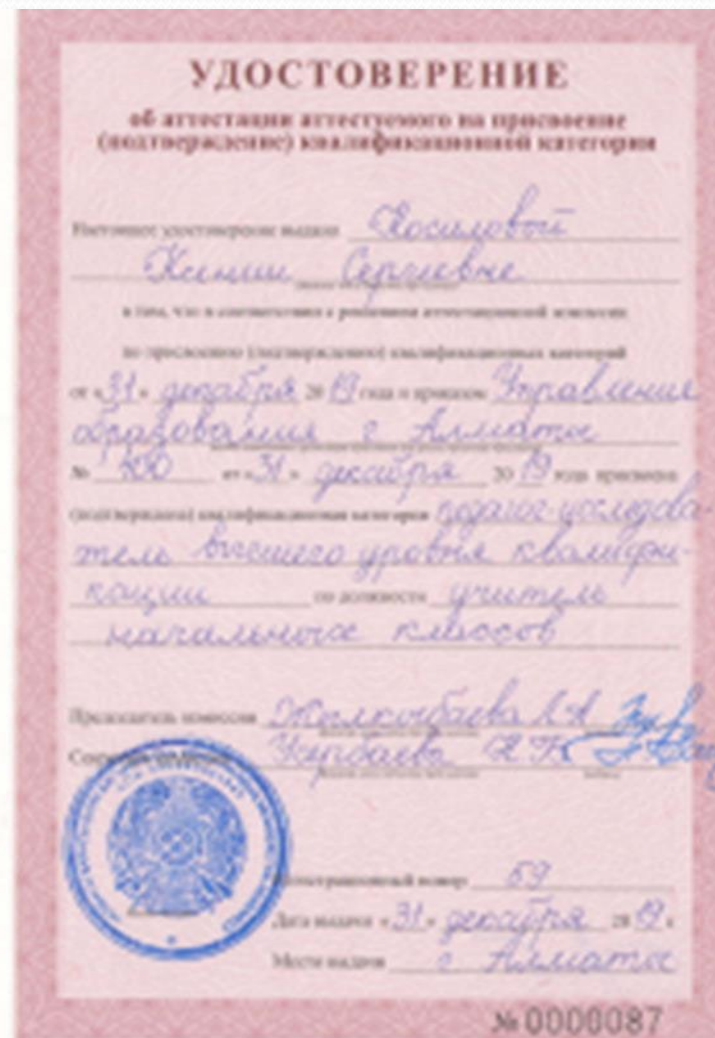 УДОСТОВЕРЕНИЕ
об аттестации аттестуемого на присвоение
(подтверждение) квалификационной категории
Настоящее удостоверение выдано Косиловой
Ксении Сергеевне
в том, что в соответствии с решением аттестационной комиссии
по присвоению (подтверждению) квалификационных категорий
от «31» декабря 2019 года и приказом Управления
образования г Алматы
№ от «31» декабря 2019 года присвоена
(подтверждена) квалификационная категория педагог-исследова-
тель высшего уровня квалифи-
кации по должности учитель
начальных классов
Председатель комиссии Жылкыбаева
Секретарь комиссии
Регистрационный номер 59
Дата выдачи «31» декабря 2019 г.
Место выдачи г Алматы
№ 0000087